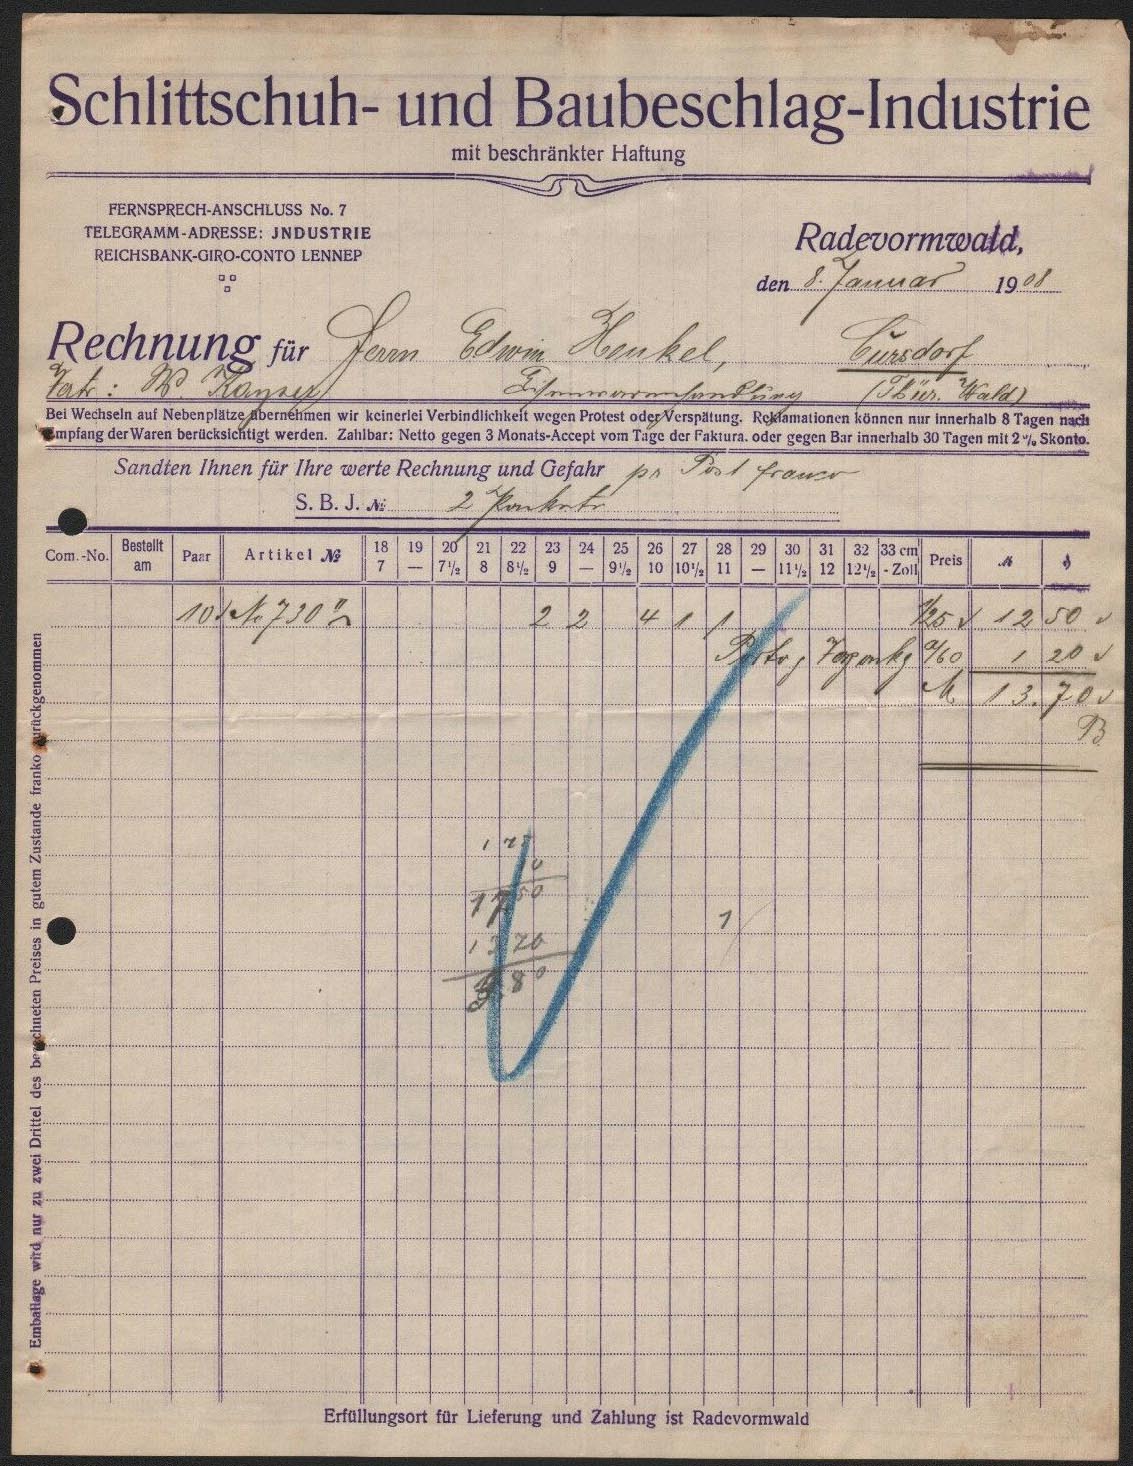 Schlittschuh- und Baubeschlag-Industrie
mit beschränkter Haftung
FERNSPRECH-ANSCHLUSS No. 7
TELEGRAMM-ADRESSE: JNDUSTRIE
REICHSBANK-GIRO-CONTO LENNEP
Radevormwald,
den 8. Januar 1908
Rechnung für Herrn Edwin Henkel, Cursdorf
Vertr: W. Kayser Eisenwarenhandlung (Thür. Wald)
Bei Wechseln auf Nebenplätze übernehmen wir keinerlei Verbindlichkeit wegen Protest oder Verspätung. Reklamationen können nur innerhalb 8 Tagen nach
Empfang der Waren berücksichtigt werden. Zahlbar: Netto gegen 3 Monats-Accept vom Tage der Faktura. oder gegen Bar innerhalb 30 Tagen mit 2% Skonto.
Sandten Ihnen für Ihre werte Rechnung und Gefahr pr Post franco
S. B. J. № 2 Pakete
Com.-No. Bestellt am Paar Artikel № 18 19 20 21 22 23 24 25 26 27 28 29 30 31 32 33 cm Preis M ₰
7 — 7½ 8 8½ 9 — 9½ 10 10½ 11 — 11½ 12 12½ - Zoll
10 No 730 2 2 4 1 1 1/25 12 50
Porto, 1/60 1 20
M 13.70
B
1 75
10
17 50
13 70
3 80
1
Emballage wird nur zu zwei Drittel des berechneten Preises in gutem Zustande franko zurückgenommen
Erfüllungsort für Lieferung und Zahlung ist Radevormwald